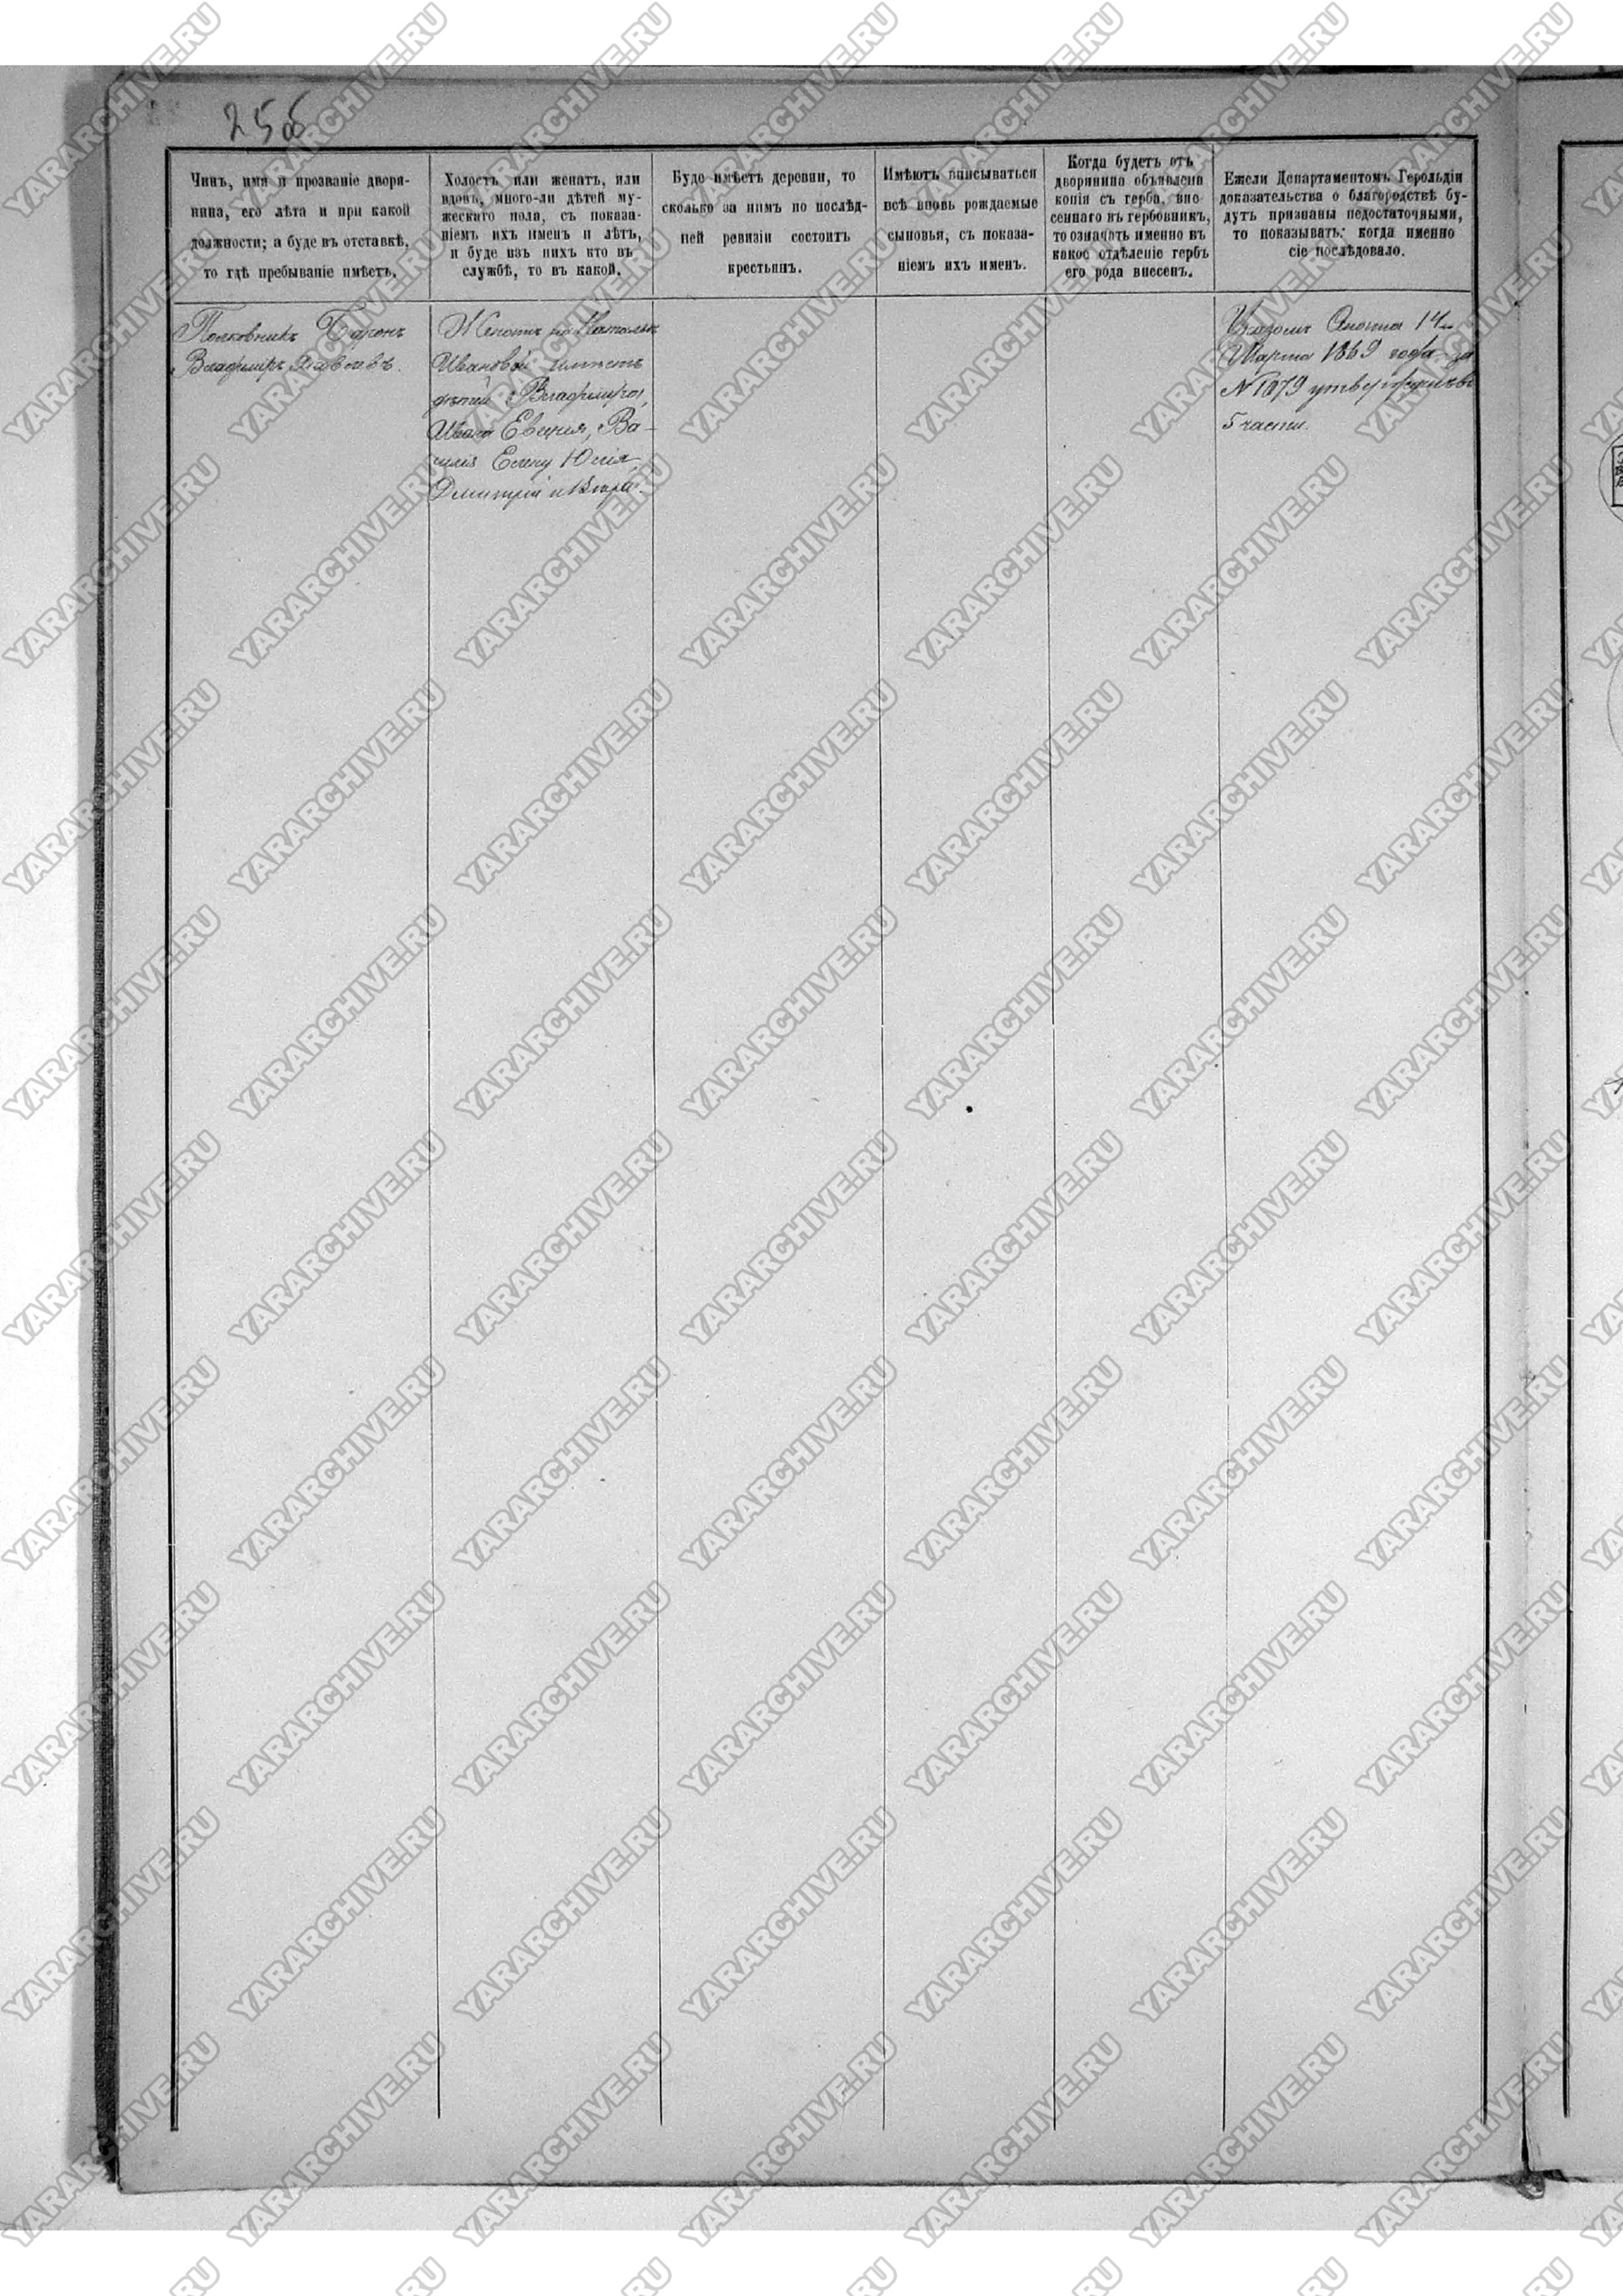 25об
Чинъ, имя и прозваніе дворя-
нина, его лѣта и при какой
должности; а буде въ отставкѣ,
то гдѣ пребываніе имѣетъ.
Холостъ или женатъ, или
вдовъ, много-ли дѣтей му-
жескаго пола, съ показа-
ніемъ ихъ именъ и лѣтъ,
и буде изъ нихъ кто въ
службѣ, то въ какой.
Буде имѣетъ деревни, то
сколько за нимъ по послѣд-
ней ревизіи состоитъ
крестьянъ.
Имѣютъ вписываться
всѣ вновь рождаемые
сыновья, съ показа-
ніемъ ихъ именъ.
Когда будетъ отъ
дворянина объявлена
копія съ герба, вне-
сеннаго въ гербовникъ,
то означать именно въ
какое отдѣленіе гербъ
его рода внесенъ.
Ежели Департаментомъ Герольдіи
доказательства о благородствѣ бу-
дутъ признаны недостаточными,
то показывать: когда именно
сіе послѣдовало.
Полковникъ Баронъ
Владиміръ
Женатъ на Натальѣ
Ивановой имѣетъ
дѣтей: Владиміра,
Ивана Евгенія, Ва-
силія Елену Юлія,
Дмитрій и
Указомъ Сената 14
Марта 1869 года за
№ 1079 утвержденъ въ
5 части.
YARARCHIVE.RU